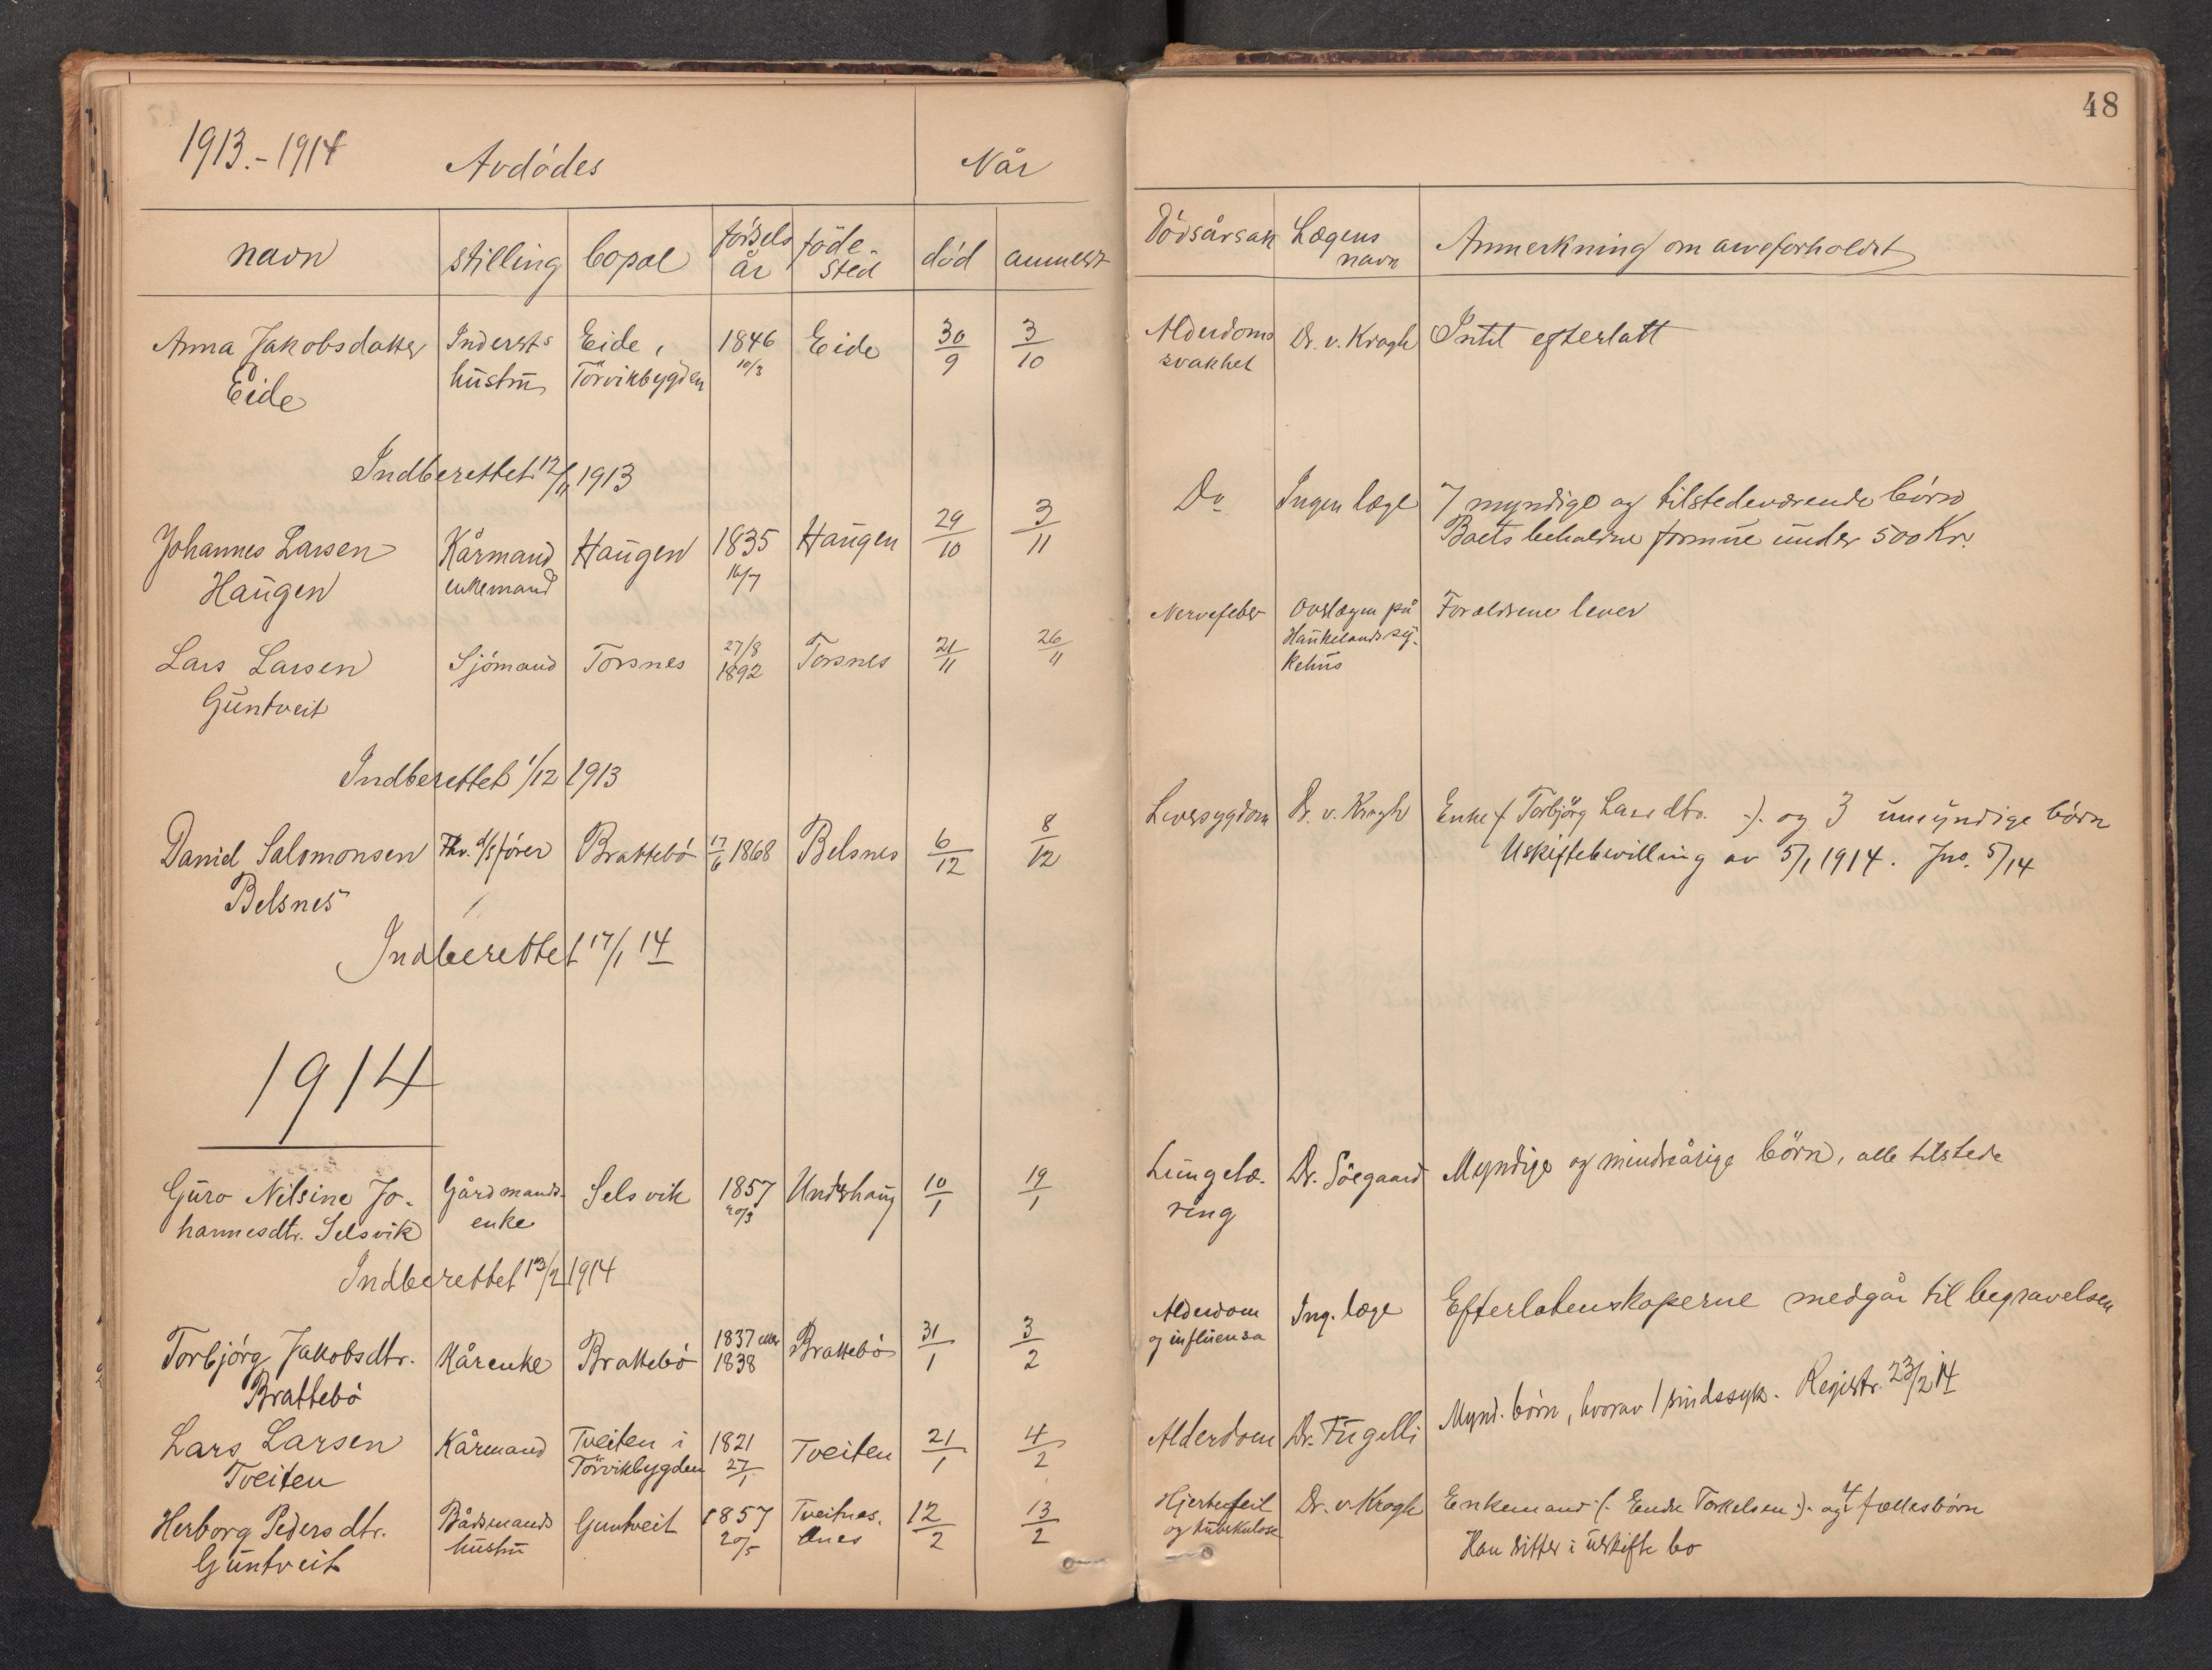 48
1913.-1914 Avdødes Når
navn stilling bopæl fødsels år føde-sted død anmeldt Dødsårsak Lægens navn Anmerkning om arveforholdet
Anna Jakobsdatter Indersts Eide, 1846 Eide 30/9 3/10 Alderdoms Dr. v. Krogh Intet efterlatt
Eide hustru Törvikbygden 10/3 svakhet
Indberettet 12/11 1913
Johannes Larsen Kårmand Haugen 1835 Haugen 29/10 3/11 Do Ingen læge 7 myndige og tilstedeværende børn
Haugen enkemand 16/7 Boets beholdne formue under 500 Kr.
Lars Larsen Sjømand Torsnes 27/8 1892 Torsnes 21/11 26/11 Nervefeber Overlægen på Foreldrene lever
Guntveit Haukelands sy-
kehus
Indberettet 1/12 1913
Daniel Salomonsen Fhv. d/s fører Brattebø 17/6 1868 Belsnes 6/12 8/12 Leversygdom Dr. v. Krogh Enke (Torbjörg Larsdtr. :). og 3 umyndige børn
Belsnes Uskiftebevilling av 5/1 1914. Jno. 5/14
Indberettet 17/1 14
1914
Guro Nilsine Jo- Gårdmands- Selsvik 1857 Underhaug 10/1 19/1 Lungetæ- Dr. Söegaard Myndige og mindreårige börn, alle tilstede
hannesdtr. Selsvik enke 20/3 ring
Indberettet 13/2 1914
Torbjörg Jakobsdtr. Kårenke Brattebø 1837 eller 1838 Brattebø 31/1 3/2 Alderdom Ing. læge Efterlatenskaperne medgår til begravelsen
Brattebø og influensa
Lars Larsen Kårmand Tveiten i 1821 Tveiten 21/1 4/2 Alderdom Dr. Fugelli Mynd. børn, hvorav 1 sindssyk. Registr. 23/2 14
Tveiten Törvikbygden 27/1
Herborg Pedersdtr. Bådsmands Guntveit 1857 Tveitnes, 12/2 13/2 Hjertefeil Dr. v. Krogh Enkemand (: Endre Torkelsen :). og 4 fællesbørn
Guntveit hustru 20/5 Ænes og tuberkulose Han sitter i uskifte bo